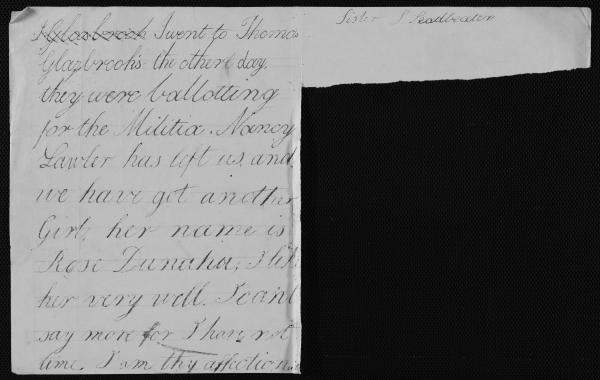 I went to Thomas
Glazbrook's the other day.
they were ballotting
for the Militia. Nancy
Lawler has left us, and
we have got another
Girl, her name is
Rose Dunaha, I lik
her very well. I can't
say more for I have not
time. I am thy affectiona
Sister S Leadbeater